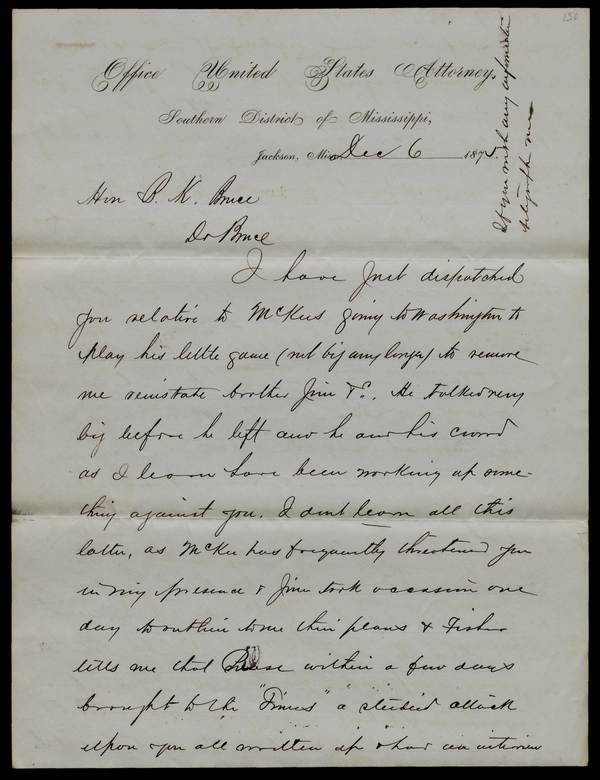 150
Office United States Attorney,
Southern District of Mississippi,
Jackson, Miss. Dec 6 1875
If you wish any information
telegraph me
Hon B. K. Bruce
Dr Bruce
I have just dispatched
you relative to McKees going to Washington to
play his little game (not big any longer) to remove
me reinstate brother Jim &c. He talked very
big before he left and he and his crowd
as I learn have been working up some-
thing against you. I dont learn all this
latter, as McKee has frequently threatened you
in my presence & Jim took occasion one
day to outline to me their plans & Fisher
tells me that within a few days
brought to the "Times" a studied attack
upon you all written up & had an interview